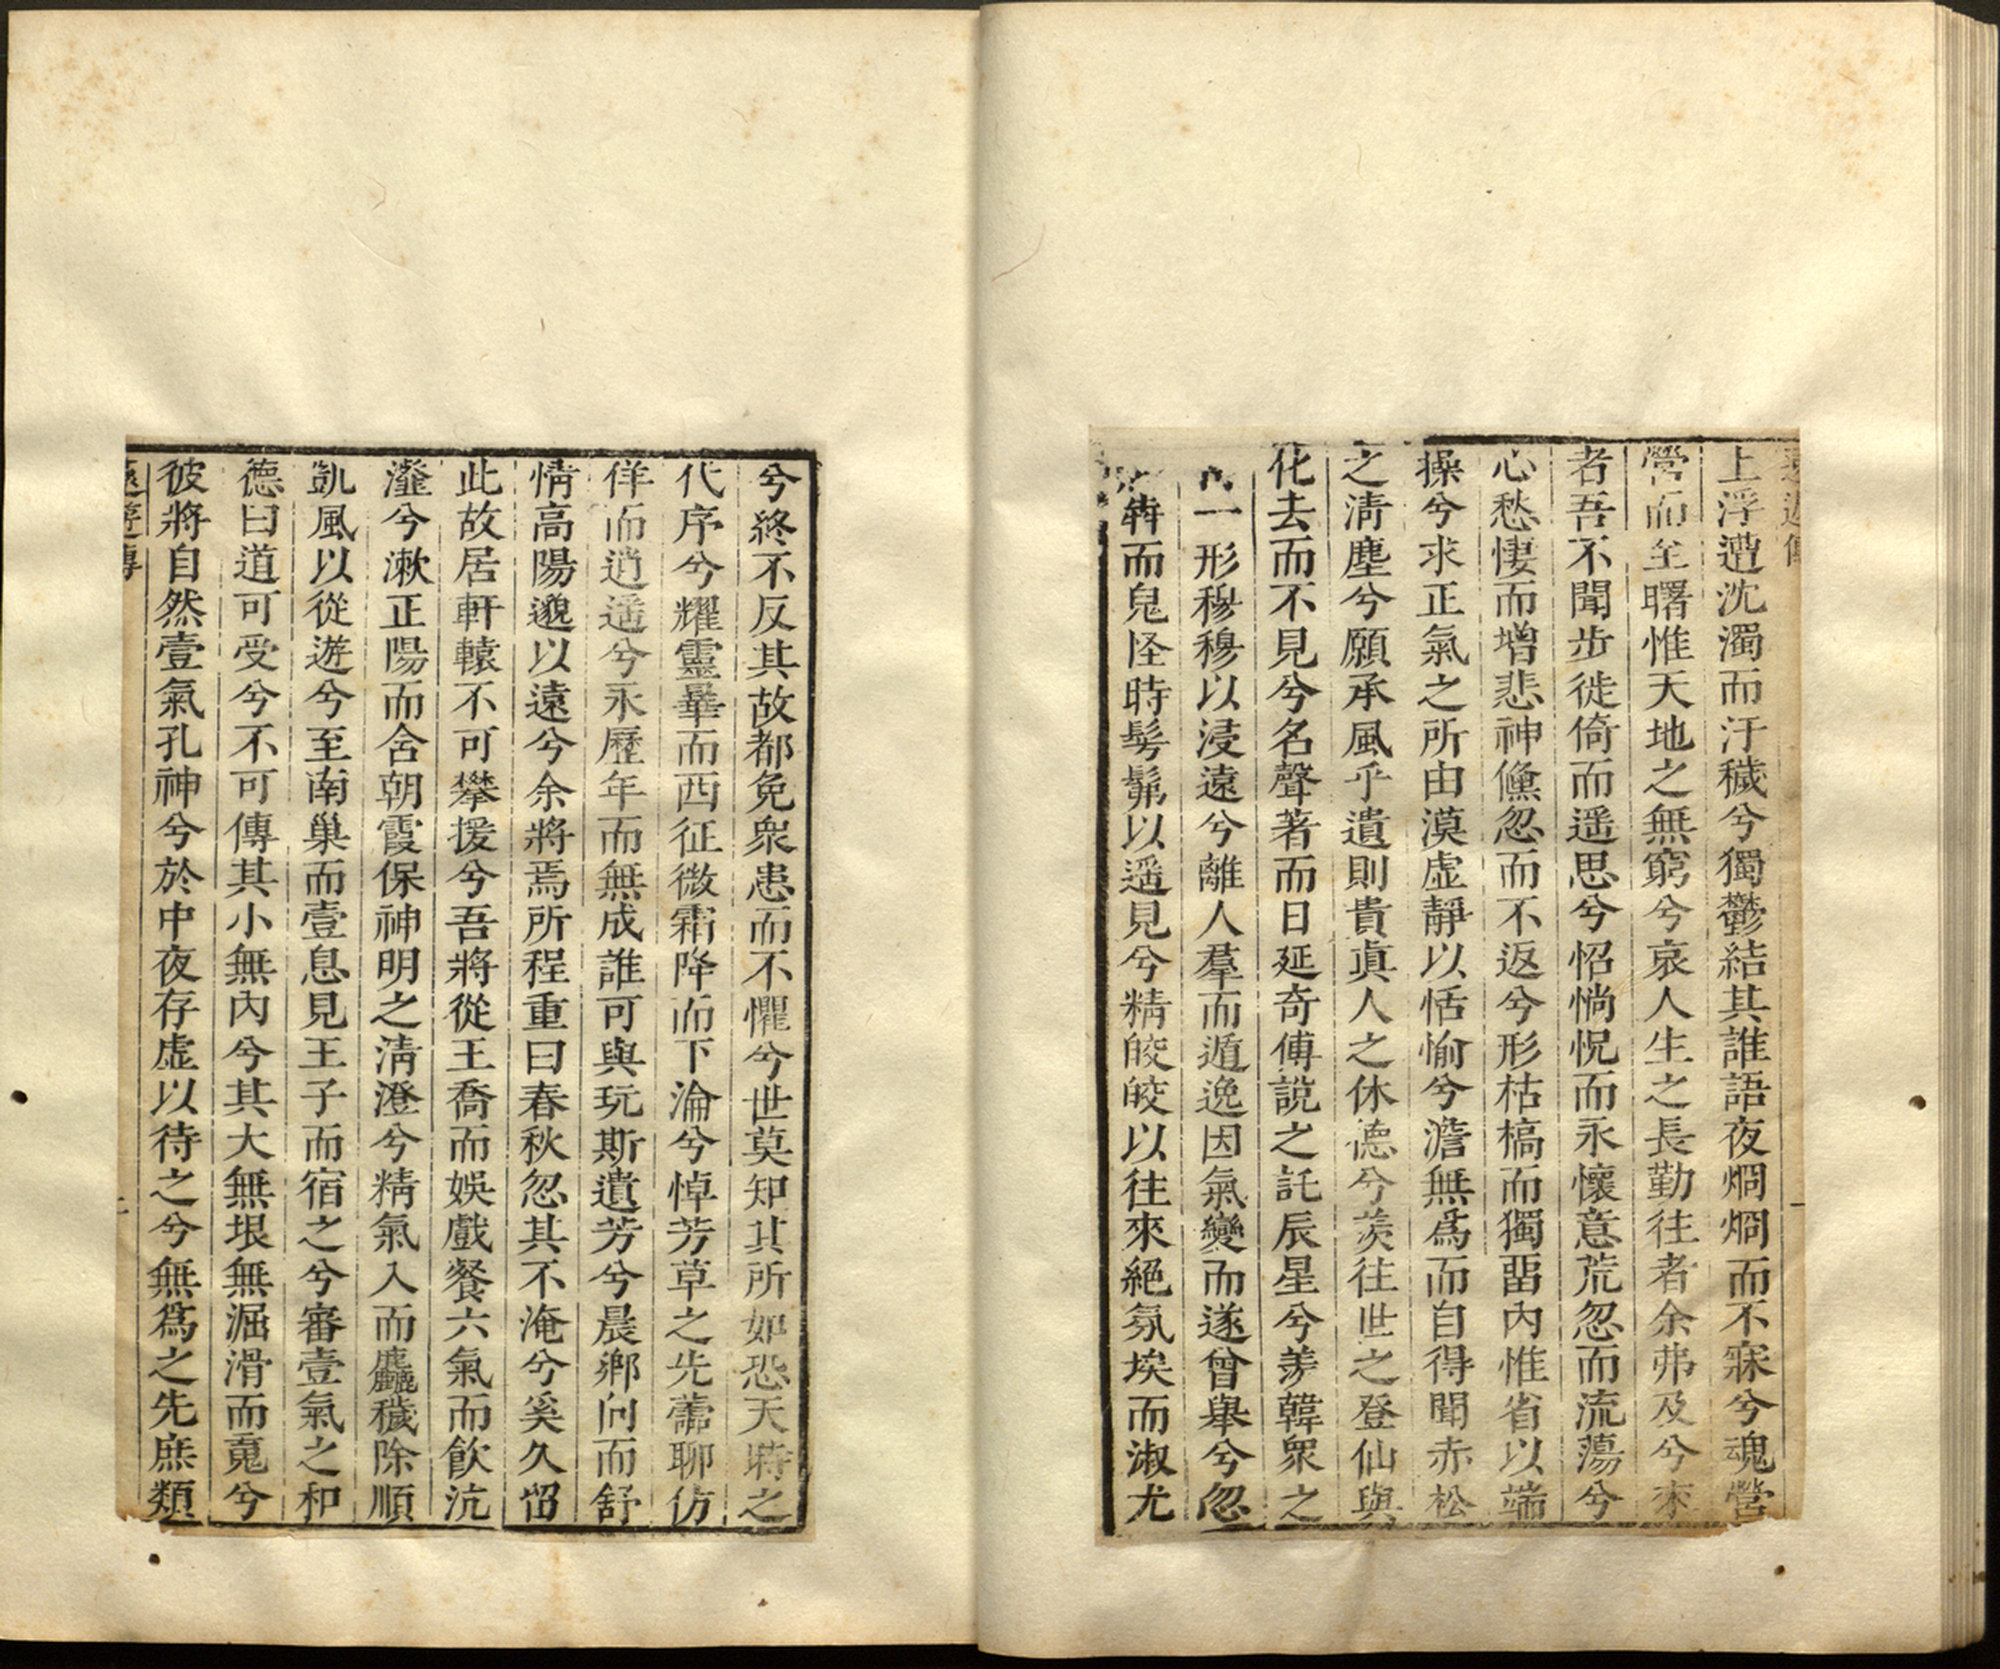 上浮遭沈濁而汙穢兮獨鬱結其誰語夜烱烱而不寐兮魂營
營而至曙惟天地之無窮兮哀人生之長勤往者余弗及兮來
者吾不聞步徙倚而遥思兮怊惝怳而永懷意荒忽而流蕩兮
心愁悽而增悲神儵忽而不返兮形枯槁而獨畱內惟省以端
操兮求正氣之所由漠虛靜以恬愉兮澹無爲而自得聞赤松
之淸塵兮願承風乎遺則貴眞人之休德兮羨往世之登仙與
化去而不見兮名聲著而日延奇傅說之託辰星兮羨韓衆之
一形穆穆以浸遠兮離人羣而遁逸因氣變而遂曾舉兮忽
犇而鬼怪時髣髴以遥見兮精皎皎以往來絕氛埃而淑尤
兮終不反其故都免衆患而不懼兮世莫知其所如恐天時之
代序兮耀靈曅而西征微霜降而下淪兮悼芳草之先蘦聊仿
佯而逍遥兮永歷年而無成誰可與玩斯遺芳兮晨鄉向而舒
情高陽邈以遠兮余將焉所程重曰春秋忽其不淹兮奚久留
此故居軒轅不可攀援兮吾將從王喬而娛戲餐六氣而飲沆
瀣兮漱正陽而含朝霞保神明之淸澄兮精氣入而麤穢除順
凱風以從遊兮至南巢而壹息見王子而宿之兮審壹氣之和
德曰道可受兮不可傳其小無內兮其大無垠無淈滑而䰟兮
彼將自然壹氣孔神兮於中夜存虛以待之兮無爲之先庶類
遠遊傳